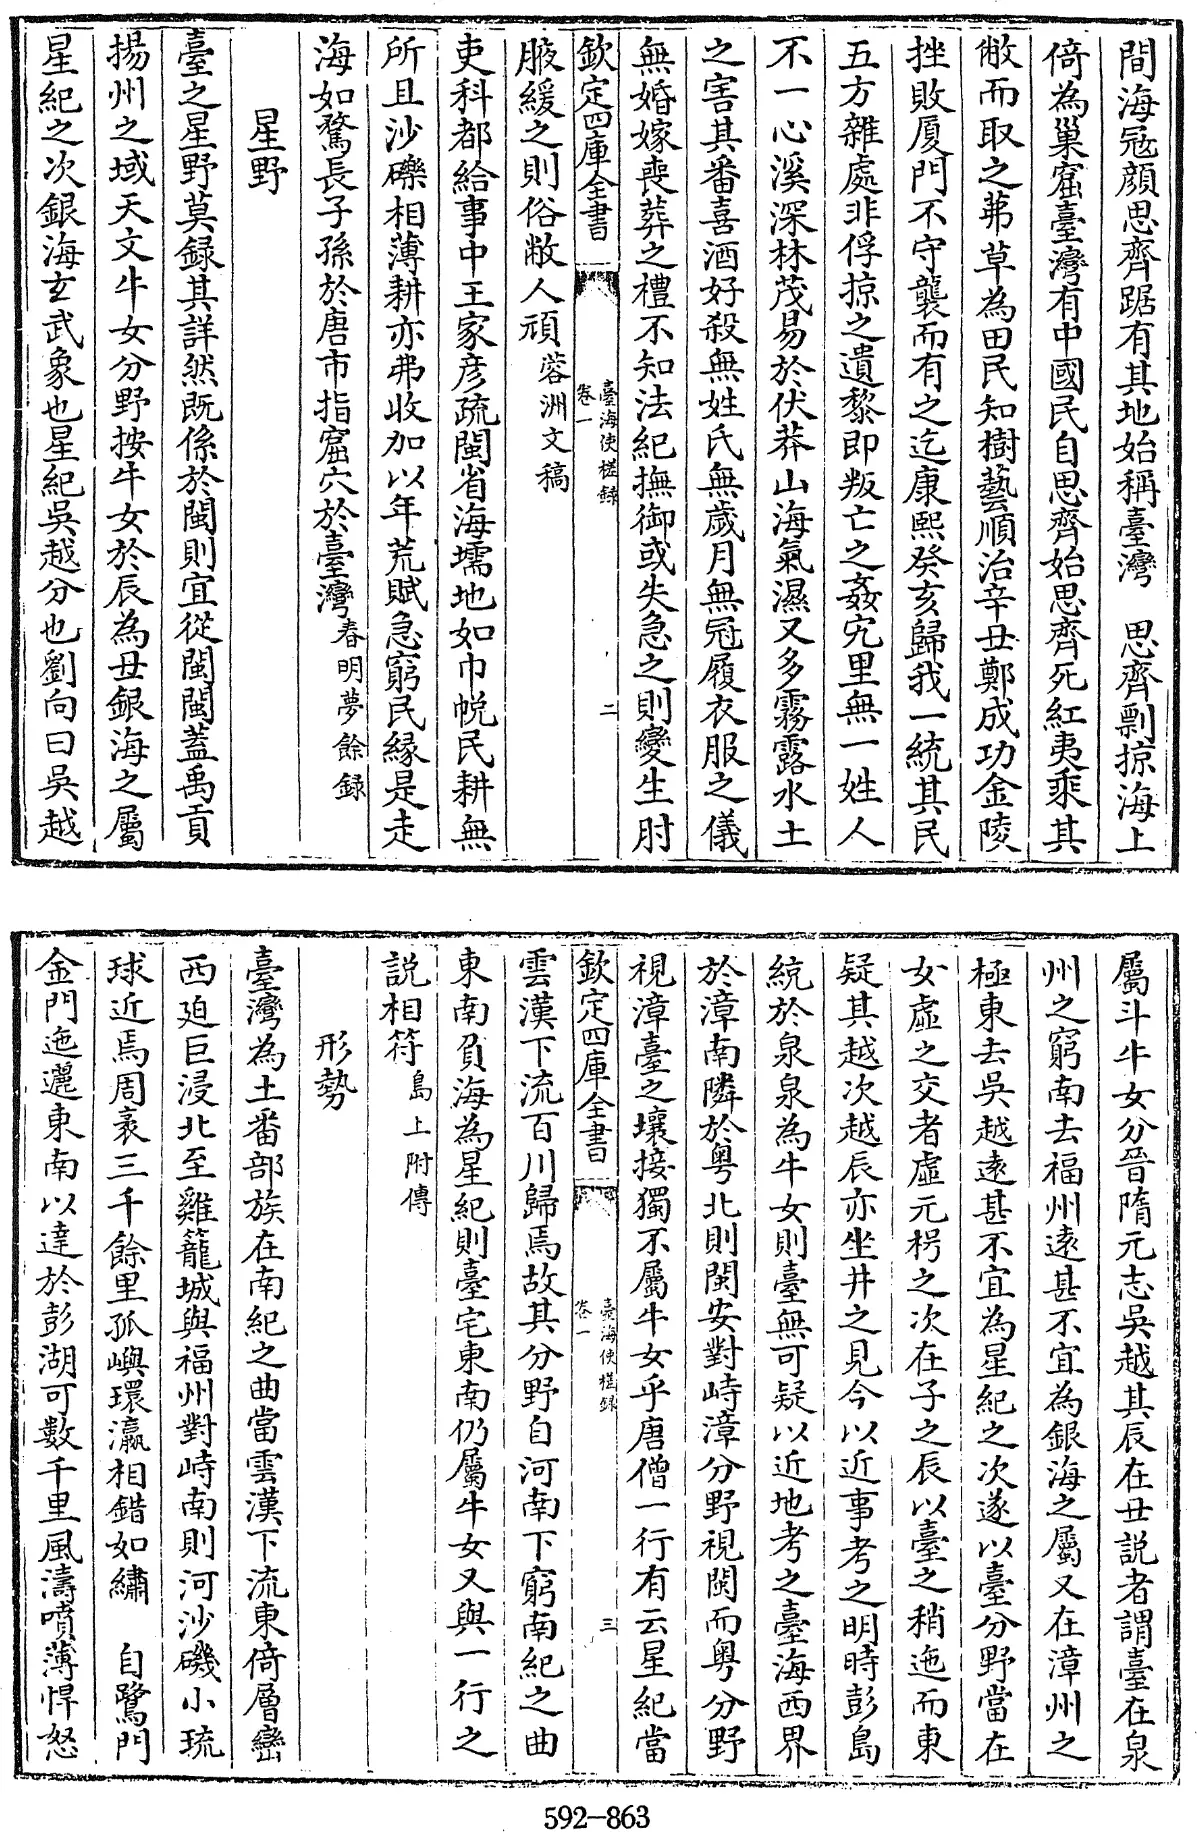 間海冦顔思齊踞有其地始稱臺灣　思齊剽掠海上
倚為巢窟臺灣有中國民自思齊始思齊死紅夷乘其
敝而取之茀草為田民知樹藝順治辛丑鄭成功金陵
挫敗厦門不守襲而有之迄康熙癸亥歸我一統其民
五方雜處非俘掠之遺黎即叛亡之姦宄里無一姓人
不一心溪深林茂易於伏莽山海氣濕又多霧露水土
之害其番喜酒好殺無姓氏無歲月無冠履衣服之儀
無婚嫁喪葬之禮不知法紀撫御或失急之則變生肘
欽定四庫全書
臺海使槎録
卷一
二
腋緩之則俗敝人頑蓉洲文稿
吏科都給事中王家彦疏閩省海壖地如巾帨民耕無
所且沙礫相薄耕亦弗收加以年荒賦急窮民縁是走
海如騖長子孫於唐市指窟穴於臺灣春明夢餘録
星野
臺之星野莫録其詳然既係於閩則宜從閩閩蓋禹貢
揚州之域天文牛女分野按牛女於辰為丑銀海之屬
星紀之次銀海玄武象也星紀吳越分也劉向曰吳越
屬斗牛女分晉隋元志吳越其辰在丑説者謂臺在泉
州之窮南去福州逺甚不宜為銀海之屬又在漳州之
極東去吳越逺甚不宜為星紀之次遂以臺分野當在
女虛之交者虛元枵之次在子之辰以臺之稍迤而東
疑其越次越辰亦坐井之見今以近事考之明時彭島
統於泉泉為牛女則臺無可疑以近地考之臺海西界
於漳南隣於粤北則閩安對峙漳分野視閩而粤分野
視漳臺之壤接獨不屬牛女乎唐僧一行有云星紀當
欽定四庫全書
臺海使槎録
卷一
三
雲漢下流百川歸焉故其分野自河南下窮南紀之曲
東南負海為星紀則臺宅東南仍屬牛女又與一行之
説相符島上附傳
形勢
臺灣為土番部族在南紀之曲當雲漢下流東倚層巒
西迫巨浸北至雞籠城與福州對峙南則河沙磯小琉
球近焉周袤三千餘里孤嶼環瀛相錯如繡　自鷺門
金門迤邐東南以達於彭湖可數千里風濤噴薄悍怒
592-863